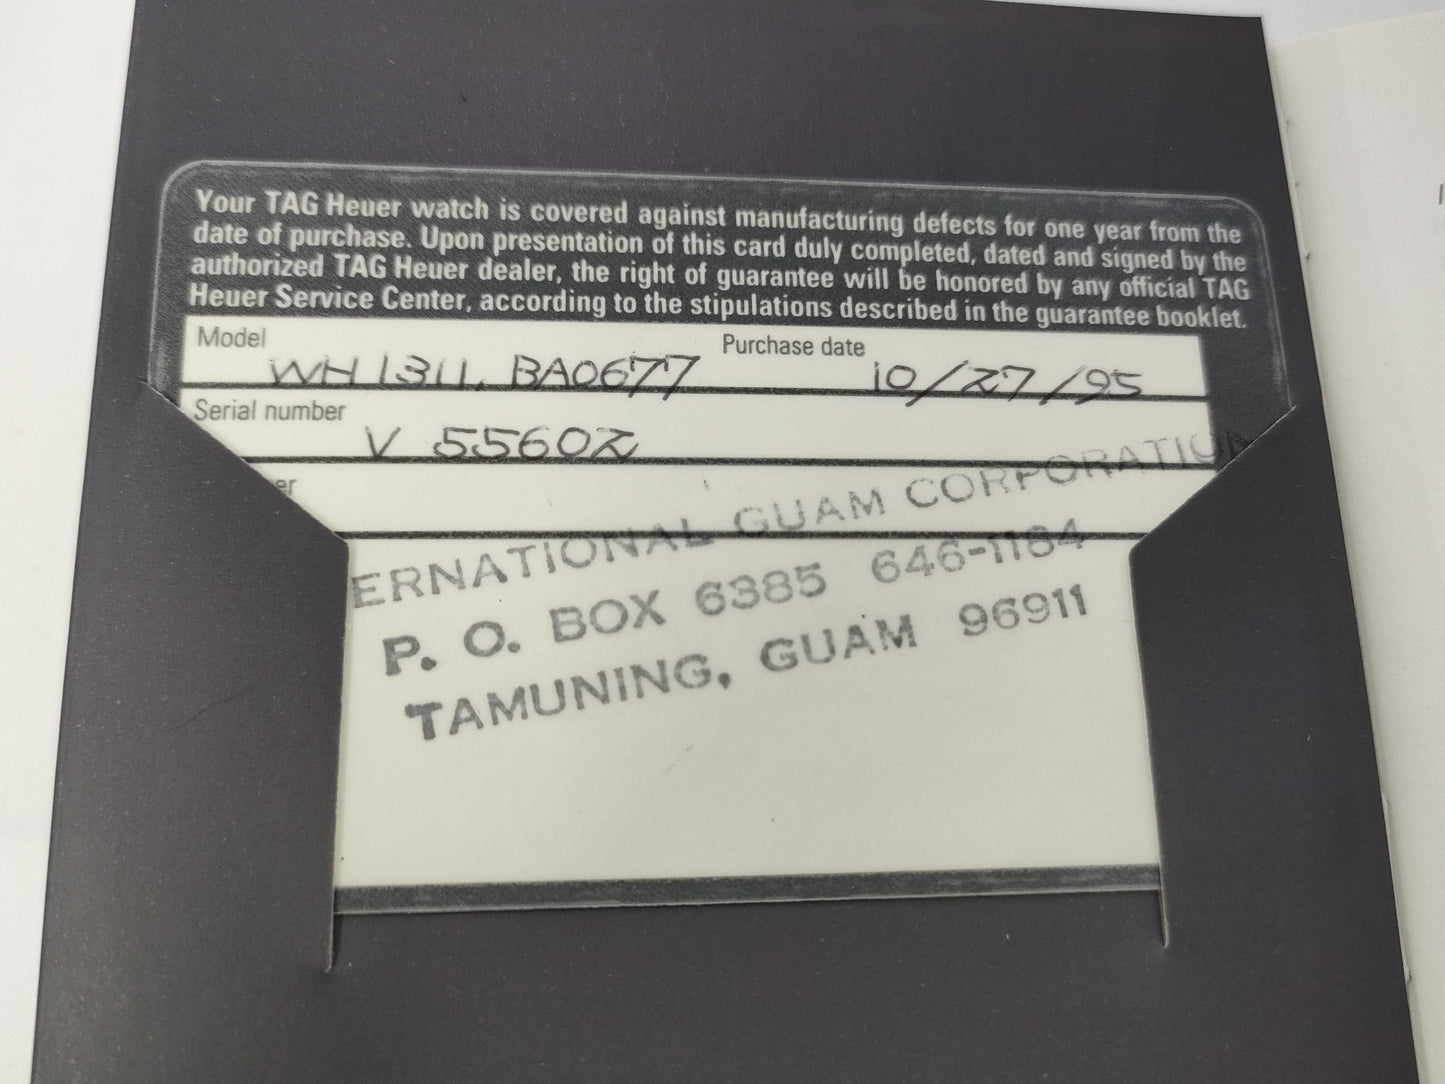 Your TAG Heuer watch is covered against manufacturing defects for one year from the
date of purchase. Upon presentation of this card duly completed, dated and signed by the
authorized TAG Heuer dealer, the right of guarantee will be honored by any official TAG
Heuer Service Center, according to the stipulations described in the guarantee booklet.
Model WH 1311. BA0677 Purchase date 10/27/95
Serial number V 55602
er
ERNATIONAL GUAM CORPORATION
P. O. BOX 6385 646-1164
TAMUNING, GUAM 96911